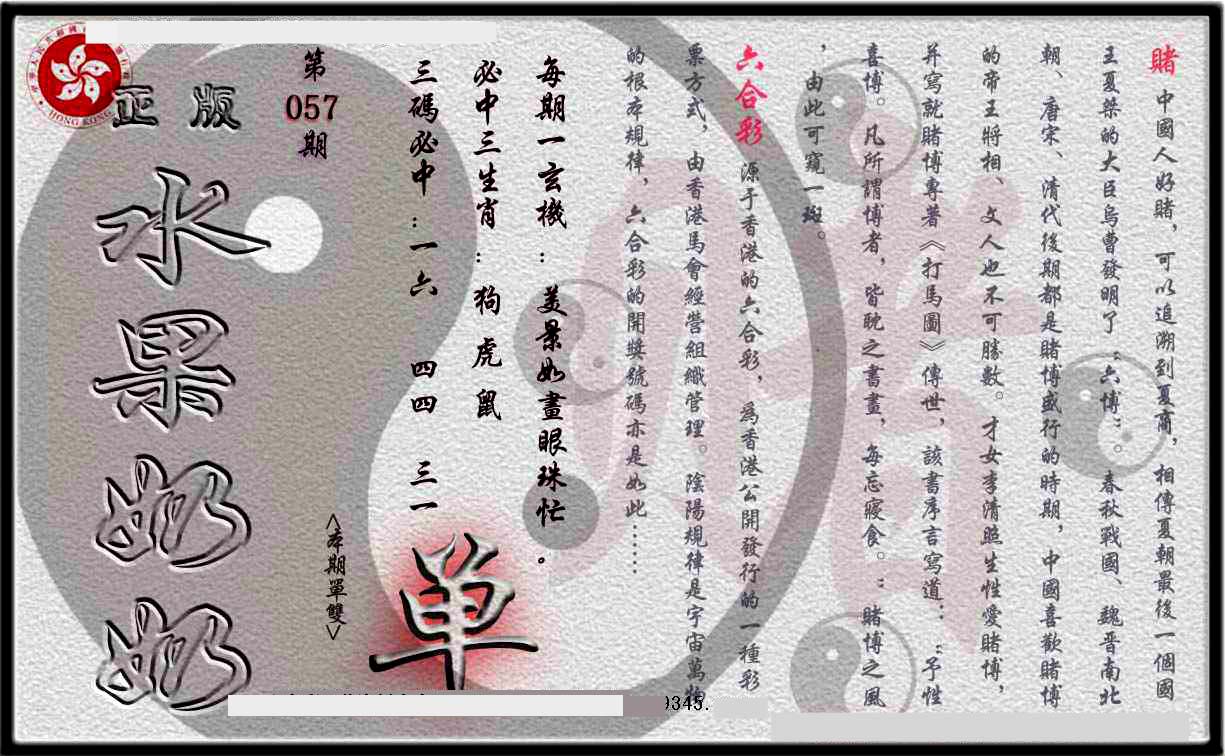 賭 中國人好賭，可以追溯到夏商，相傳夏朝最後一個國
王夏桀的大臣烏曹發明了“六博”。春秋戰國、魏晋南北
朝、唐宋、清代後期都是賭博盛行的時期，中國喜歡賭博
的帝王將相、文人也不可勝數。才女李清照生性愛賭博，
并寫就賭博專著《打馬圖》傳世，該書序言寫道：“予性
喜博。凡所謂博者，皆耽之書畫，每忘寢食。”賭博之風
，由此可窺一斑。
六合彩 源于香港的六合彩，爲香港公開發行的一種彩
票方式，由香港馬會經營組織管理。陰陽規律是宇宙萬物
的根本規律，六合彩的開獎號碼亦是如此……
每期一玄機：美景如畫眼珠忙。
必中三生肖：狗 虎 鼠
三碼必中：一六 四四 三一
單
<本期單雙>
第
057
期
正版
水果奶奶
HONG KONG
9345.